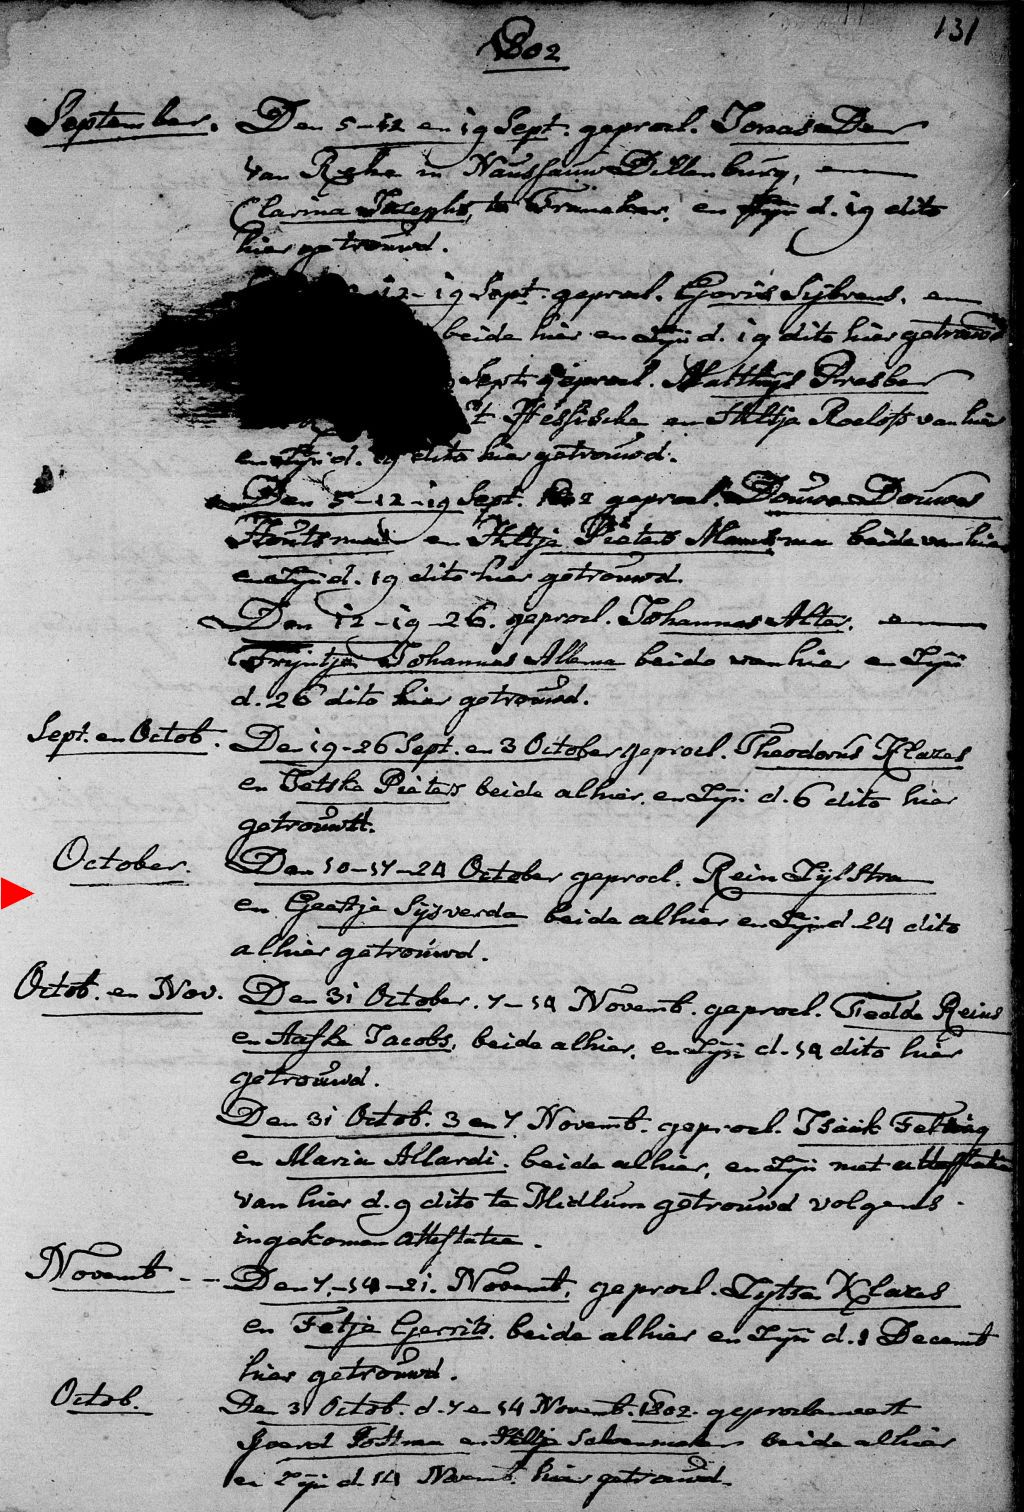 131
1802
September. Den 5-12 en 19 Sept. geprocl. Jonas Der
van in Naussauw Dillenburg, en
Clarina Josephs, te Franeker, en zijn d. 19 dito
hier getrouwd.
12-19 Sept. geprocl. Goris Sybrens, en
beide hier en zijn d. 19 dito hier getrouwd
Sept. geprocl. Matthijs Presber
't Hessische en Hiltja Roelofs van hier
en zijn d. 19 dito hier getrouwd.
Den 5-12-19 Sept. 1802 geprocl. Douwe Douwes
Houtsma en Hiltje Pieters beide van hier
en zijn d. 19 dito hier getrouwd.
Den 12-19-26. geprocl. Johannes Alter, en
Trijntje Johannes Allema beide van hier en zijn
d. 26 dito hier getrouwd.
Sept. en Octob. De 19-26 Sept. en 3 October geprocl. Theodorus Klazes
en Jetske Pieters beide alhier, en zijn d. 6 dito hier
getrouwtt.
October. Den 10-17-24 October geprocl. Rein Zijlstra
en Geertje Sijsverda beide alhier en zijn d. 24 dito
alhier getrouwd.
Octob. en Nov. Den 31 October. 7-14 Novemb. geprocl. Fedde Reins
en Aafke Jacobs, beide alhier, en zijn d. 14 dito hier
getrouwd.
Den 31 Octob. 3 en 7 Novemb. geprocl. Isaak
en Maria Allardi. beide alhier, en zijn met attestatie
van hier d. 9 dito te Midlum getrouwd volgens
ingekomen attestatie.
Novemb -- Den 7-14-21. Novemb. geprocl. Zytse Klazes
en Fetje Gerrits. beide alhier en zijn d. 1 Decemb
hier getrouwd.
Octob. De 31 Octob. d. 7 en 14 Novemb. 1802. geproclameert
Sjoerd Postma en Hiltje Schoenmaker beide alhier
en zijn d. 14 Novemb. hier getrouwd.